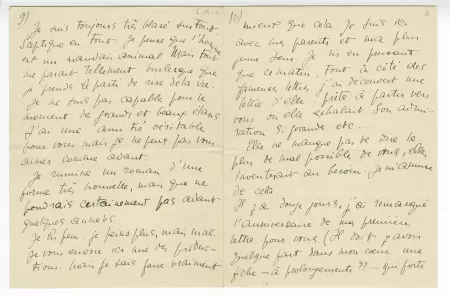 9)
Je suis toujours très blasé sur tout.
Sceptique en tout. Je pense que l'homme
est un mauvais animal. Mais tout
me paraît tellement burlesque que
je prends le parti de rire de la vie.
Je ne suis pas capable pour le
moment de grands et beaux élans
J'ai une amitié véritable
pour vous mais je ne peux pas vous
aimer comme avant.
Je rumine un roman d'une
forme très nouvelle, mais que ne
foudrais certainement pas avant
quelques années.
Je lis peu. Je peins plus, mais mal
Je vous envoie ici une des
mais je sais faire vraiment
10)
mieux que cela. Je suis ici
avec mes parents et ma plus
jeune sœur. Je ris en pensant
que ce matin, tout à côté des
fameuses lettres, j'ai découvert une
lettre d'elle prête à partir vers
vous où elle exhalait son admi-
ration si grande etc...
Elle ne manque pas de dire le
plus de mal possible de vous, elle
inventerait au besoin. Je m'amuse
de cela
Il y a douze jours, j'ai remarqué
l'anniversaire de ma première
lettre pour vous (Il doit y avoir
quelque part dans mon cœur une
fiche – à prolongements ?? – qui porte